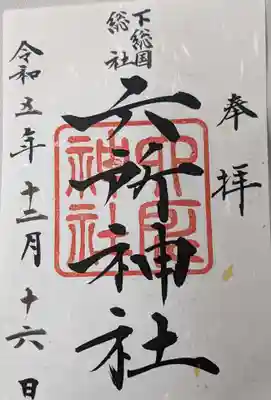 奉拝
下総国
総社
六所神社
令和五年十二月十六日